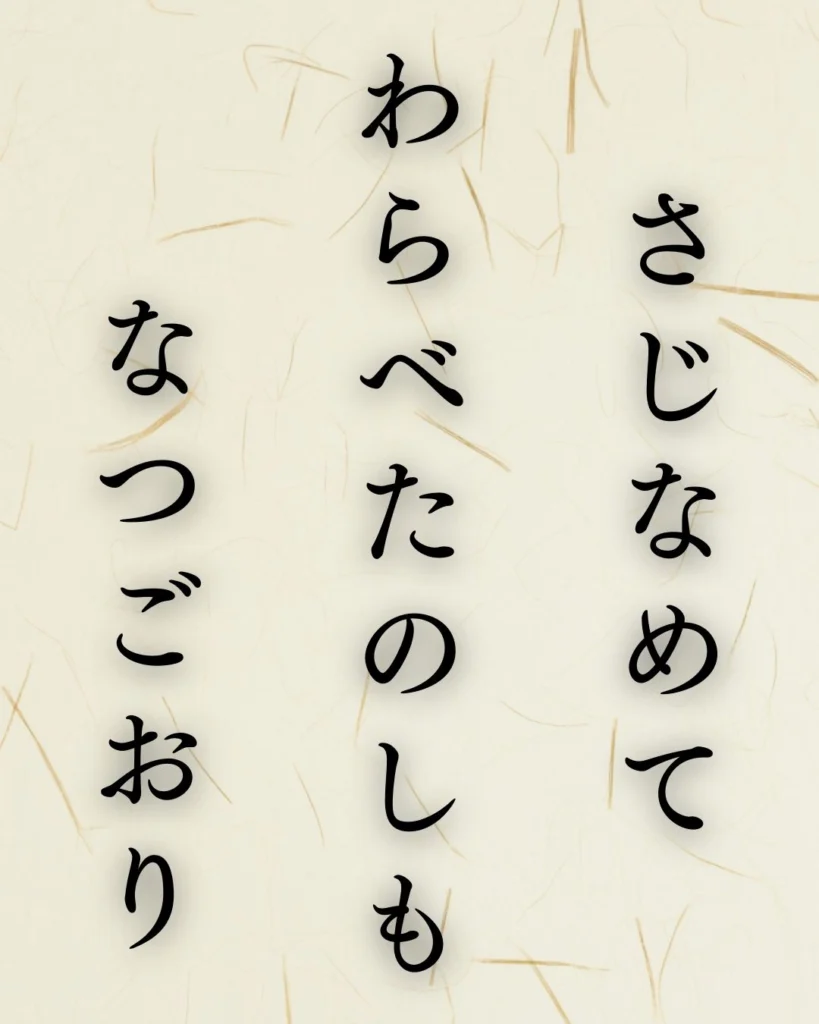 さじなめて
わらべたのしも
なつごおり